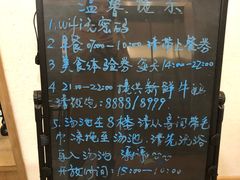 温馨提示
1. Wifi无密码
2. 早餐 07:00-10:00 请带上餐券
3. 美食体验券 每天14:00-22:00
4. 21:00-22:00 提供新鲜牛
请拨总: 8888/8999
5. 汤池在8楼 请从房间带毛
巾、浴袍至汤池, 请先洗浴
再入汤池
开放时间: 15:00-10:00